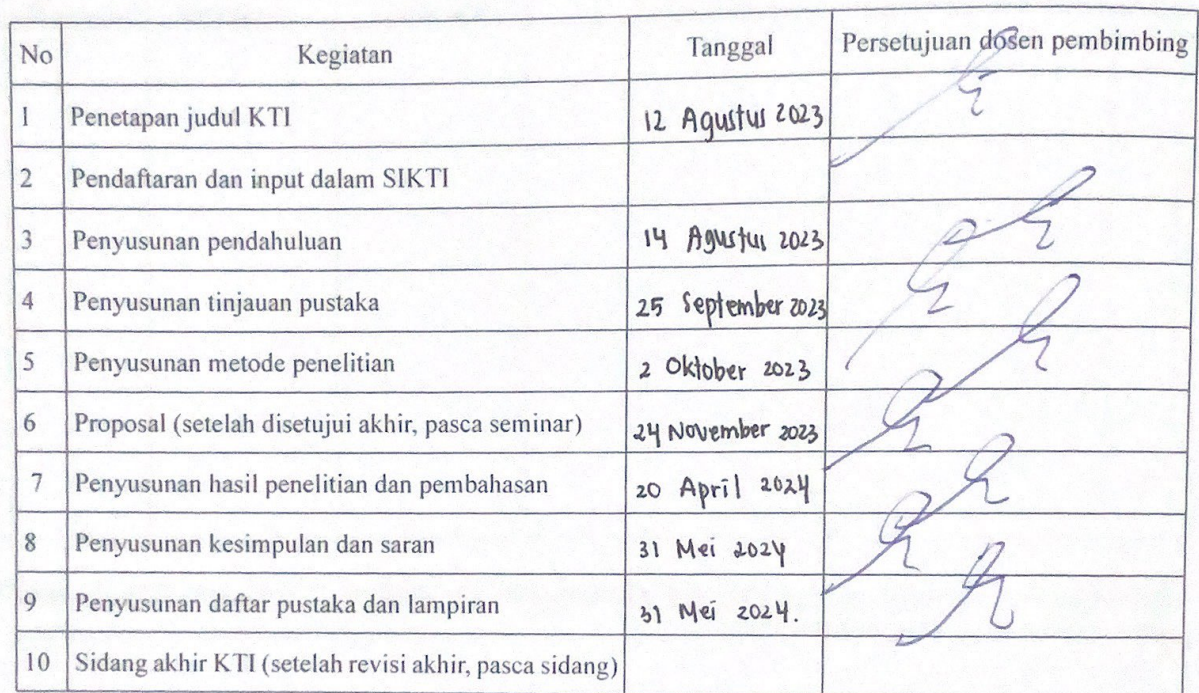 No Kegiatan Tanggal Persetujuan dosen pembimbing
1 Penetapan judul KTI 12 Agustus 2023
2 Pendaftaran dan input dalam SIKTI
3 Penyusunan pendahuluan 14 Agustus 2023
4 Penyusunan tinjauan pustaka 25 September 2023
5 Penyusunan metode penelitian 2 Oktober 2023
6 Proposal (setelah disetujui akhir, pasca seminar) 24 November 2023
7 Penyusunan hasil penelitian dan pembahasan 20 April 2024
8 Penyusunan kesimpulan dan saran 31 Mei 2024
9 Penyusunan daftar pustaka dan lampiran 31 Mei 2024.
10 Sidang akhir KTI (setelah revisi akhir, pasca sidang)